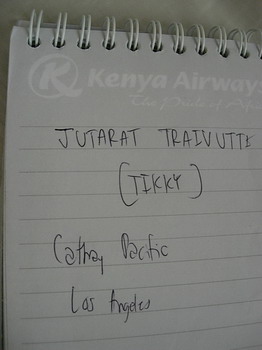 Kenya Airways
The Pride of Afri
JUTARAT TRAIVUTTE
(TIKKY)
Cathay Pacific
Los Angeles